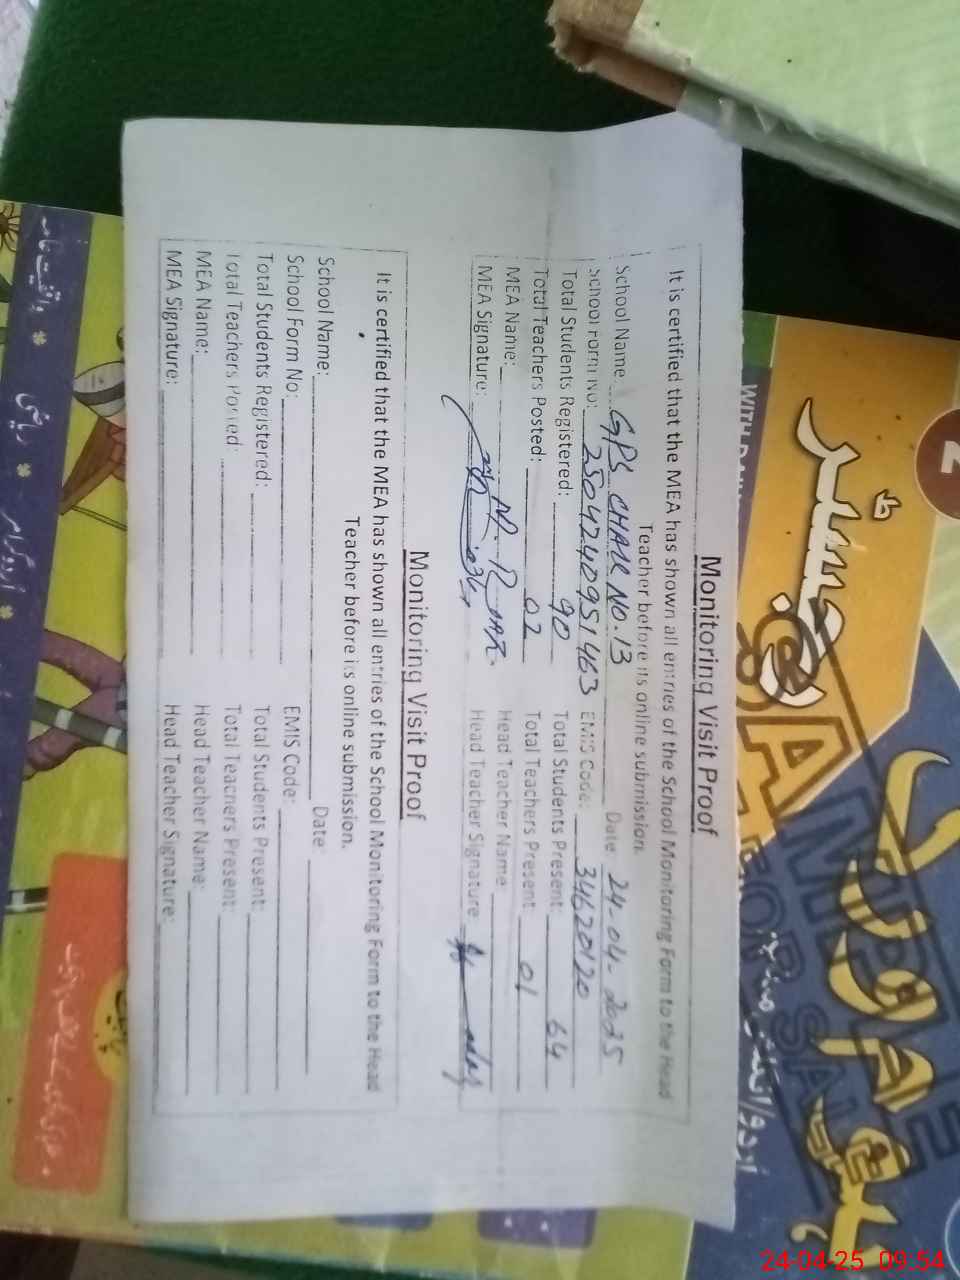 Monitoring Visit Proof
It is certified that the MEA has shown all entries of the School Monitoring Form to the Head
Teacher before its online submission.
School Name: GPS CHAK NO. 13 Date: 24-04-2025
School Form No: 2504240951463 EMIS Code: 34620120
Total Students Registered: 90 Total Students Present: 64
Total Teachers Posted: 02 Total Teachers Present: 01
MEA Name: Head Teacher Name:
MEA Signature: Head Teacher Signature
Monitoring Visit Proof
It is certified that the MEA has shown all entries of the School Monitoring Form to the Head
Teacher before its online submission.
School Name: Date:
School Form No: EMIS Code:
Total Students Registered: Total Students Present:
Total Teachers Posted: Total Teachers Present:
MEA Name: Head Teacher Name:
MEA Signature: Head Teacher Signature:
2
WITH
FOR SALE
واقفیت عامہ
ریاضی
اردو
24-04-25 09:54